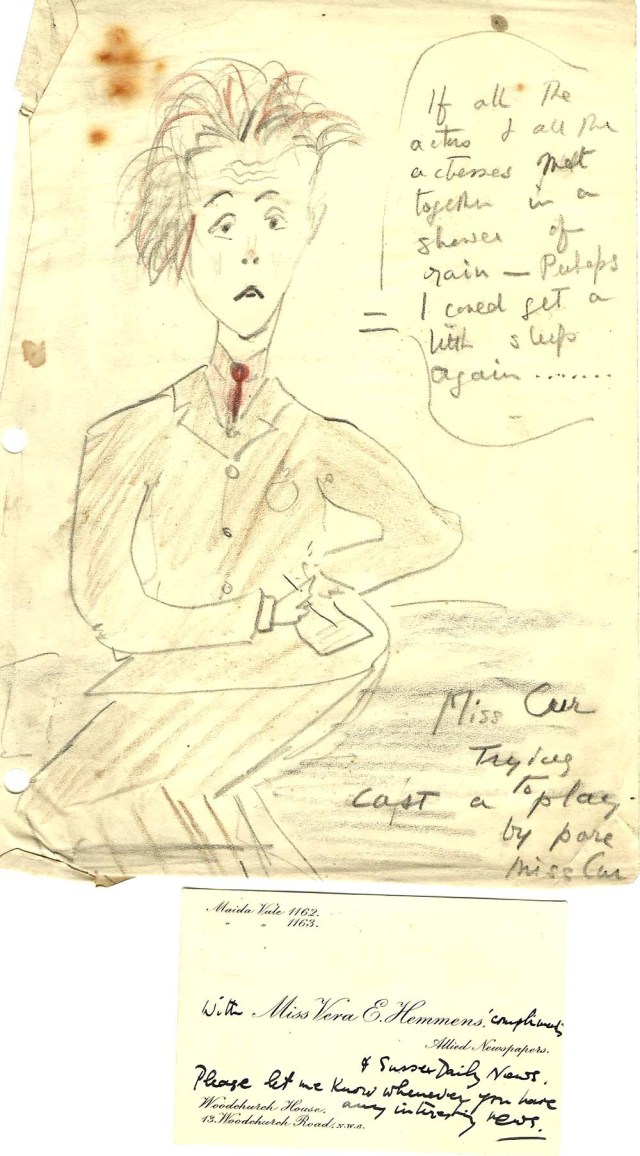 If all the
actors & all the
actresses melt
together in a
shower of
rain — Perhaps
I coued get a
little sleep
again ........
=
Miss Cur
Trying
to
cast a play.
by pore
Miss Cur
Maida Vale 1162.
" " 1163.
With Miss Vera E. Hemmens' compliments
Allied Newspapers.
& Sussex Daily News.
Please let me know whenever you have
any interesting news.
Woodchurch House,
13, Woodchurch Road, N.W.6.